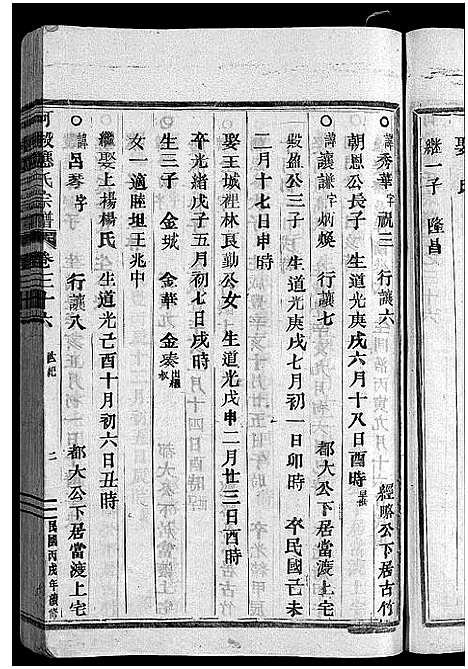 娶氏
繼一子 隆昌
○諱秀華字祝三 行讓六 經略公下居古竹
朝恩公長子 生道光庚戌六月十八日酉時
○諱讓謙字炳煥 行讓七 都大公下居當渡上宅
毅盈公三子 生道光庚戌七月初一日卯時 卒民國己未
二月十七日申時
娶王城裡林良勤公女 生道光戊申二月廿三日酉時
卒光緒戊子五月初七日戌時
生三子 金城 金華 金奏出繼
女一適睦坦王兆中
繼娶上楊楊氏 生道光己酉十月初六日丑時
○諱呂琴字 行讓八 都大公下居當渡上宅
可投應氏宗譜 卷三十六 世紀 二 民國丙戌年續修